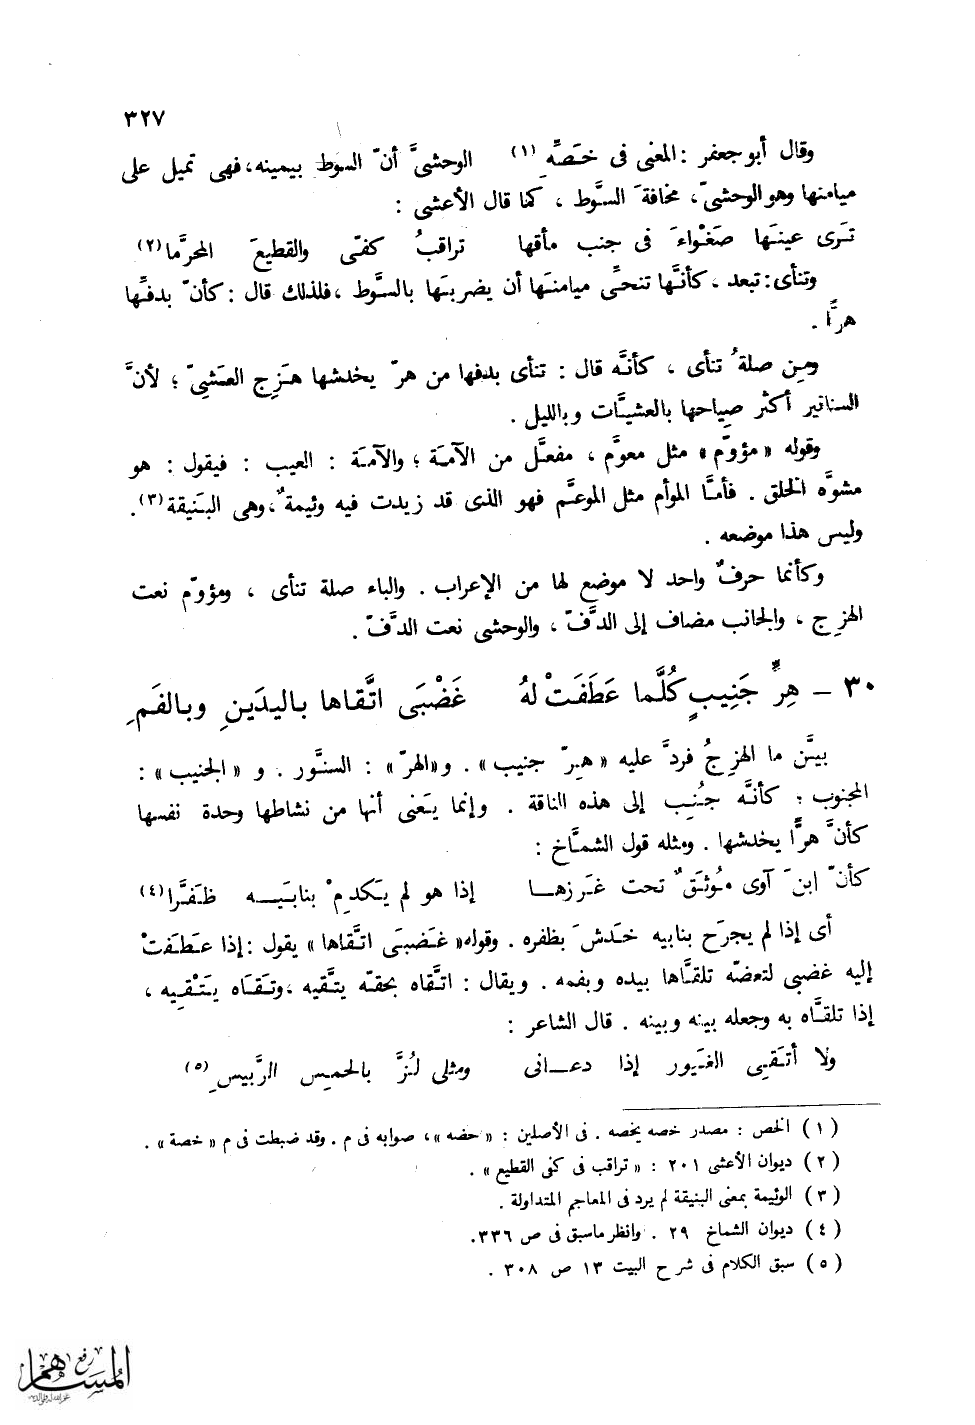 ٣٢٧
وقال أبو جعفر : المعنى فى خَصِّه (١) الوحشىَّ أنّ السوط بيمينه، فهى تميل على
ميامنها وهو الوحشىّ، مخافةَ السَّوط ، كما قال الأعشى :
تَرى عينَها صَغْواءَ فى جنب مأقها تراقبُ كفّى والقطيعَ المحرَّما (٢)
وتنأى: تبعد ، كأنَّها تنحِّى ميامنَها أن يضربَها بالسَّوط ، فلذلك قال : كأنّ بدفِّها
هرًّا .
ومِن صلةُ تنأى ، كأنَّه قال : تنأى بدفها من هرّ يخدشها هَزِج العَشىّ ؛ لأنَّ
السنانير أكثر صِياحها بالعشيَّات وبالليل .
وقوله « مؤوّم » مثل معوَّم ، مفعَّل من الآمَة ؛ والآمَة : العيب : فيقول : هو
مشوَّه الخلق . فأمَّا الموأم مثل الموعَّم فهو الذى قد زيدت فيه وئيمةٌ، وهى البَنيقة (٣).
وليس هذا موضعه .
وكأنما حرفٌ واحد لا موضع لها من الإعراب . والباء صلة تنأى ، ومؤوّم نعت
الهزِج ، والجانب مضاف إلى الدَّفّ ، والوحشى نعت الدَّفّ .
٣٠ – هِرٍّ جَنِيبٍ كُلَّما عَطَفَتْ لهُ غَضْبَى اتَّقاها باليدَينِ وبالفَمِ
بيَّن ما الهزِجُ فردَّ عليه « هِرّ جنيب » . و« الهرّ » : السنَّور . و « الجنيب » :
المجنوب ؛ كأنَّه جُنِب إلى هذه الناقة . وإنما يَعنى أنها من نشاطها وحدة نفسها
كأنَّ هرًّا يخدشها . ومثله قول الشمَّاخ :
كأنّ ابنَ آوى مُوثَقٌ تحت غَرزها إذا هو لم يَكدِمْ بنابَيه ظَفَّرا (٤)
أى إذا لم يجرَح بنابيه خَدشَ بظفره . وقوله « غَضبَى اتَّقاها » يقول : إذا عَطَفَتْ
إليه غضبى لتعضّه تلقَّاها بيده وبفمه . ويقال : اتَّقاه بحقّه يتَّقيه ، وتَقَاه يَتْقِيه ،
إذا تلقَّاه به وجعله بينه وبينه . قال الشاعر :
ولا أتَقى الغَيور إذا دعانى ومثلى لُزَّ بالحمِس الرَّبيسِ (٥)
( ١ ) الخص : مصدر خصه يخصه . فى الأصلين : « حضه » ، صوابه فى م . وقد ضبطت فى م « خصة » .
( ٢ ) ديوان الأعشى ٢٠١ : « تراقب فى كفى القطيع » .
( ٣ ) الوئيمة بمعنى البنيقة لم يرد فى المعاجم المتداولة .
( ٤ ) ديوان الشماخ ٢٩ . وانظر ماسبق فى ص ٣٣٦.
( ٥ ) سبق الكلام فى شرح البيت ١٣ ص ٣٠٨ .
رفع
المساهم